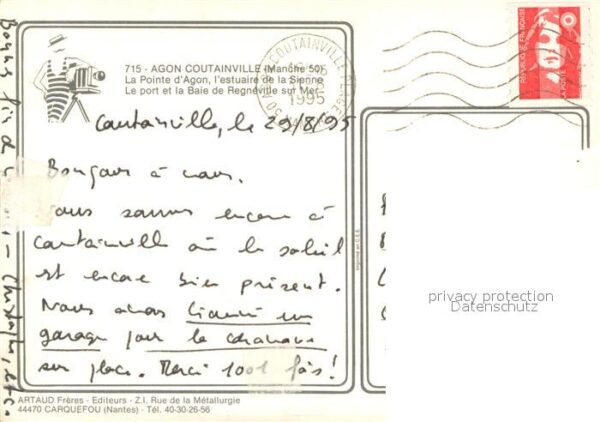 715 - AGON COUTAINVILLE (Manche 50)
La Pointe d'Agon, l'estuaire de la Sienne
Le port et la Baie de Regnéville sur Mer
COUTAINVILLE
1995
RÉPUBLIQUE FRANÇAISE
LA POSTE
Coutainville, le 29/8/95
Bonjour à vous.
Nous sommes encore à
Coutainville où le soleil
est encore bien présent.
Nous avons trouvé un
garage pour la caravane
sur place. Merci 1001 fois!
Christophe, etc.
imprimé en C.E.E.
privacy protection
Datenschutz
ARTAUD Frères - Editeurs - Z.I. Rue de la Métallurgie
44470 CARQUEFOU (Nantes) - Tél. 40-30-26-56